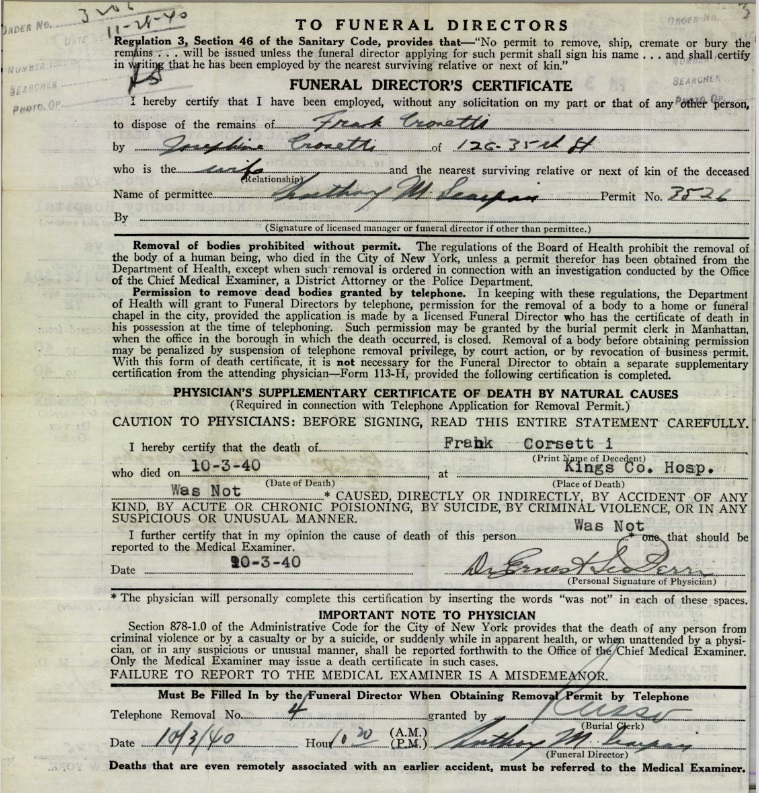 ORDER NO. 3206
11-28-40
SEARCHER
PHOTO. OP.
ORDER NO. 3
SEARCHER
PHOTO OP.
TO FUNERAL DIRECTORS
Regulation 3, Section 46 of the Sanitary Code, provides that—"No permit to remove, ship, cremate or bury the
remains . . . will be issued unless the funeral director applying for such permit shall sign his name . . . and shall certify
in writing that he has been employed by the nearest surviving relative or next of kin."
FUNERAL DIRECTOR'S CERTIFICATE
I hereby certify that I have been employed, without any solicitation on my part or that of any other person,
to dispose of the remains of Frank Crosetti
by Josephine Crosetti of 126-35th St
who is the wife and the nearest surviving relative or next of kin of the deceased
(Relationship)
Name of permittee Anthony M. Scarpaci Permit No. 3526
By
(Signature of licensed manager or funeral director if other than permittee.)
Removal of bodies prohibited without permit. The regulations of the Board of Health prohibit the removal of
the body of a human being, who died in the City of New York, unless a permit therefor has been obtained from the
Department of Health, except when such removal is ordered in connection with an investigation conducted by the Office
of the Chief Medical Examiner, a District Attorney or the Police Department.
Permission to remove dead bodies granted by telephone. In keeping with these regulations, the Department
of Health will grant to Funeral Directors by telephone, permission for the removal of a body to a home or funeral
chapel in the city, provided the application is made by a licensed Funeral Director who has the certificate of death in
his possession at the time of telephoning. Such permission may be granted by the burial permit clerk in Manhattan,
when the office in the borough in which the death occurred, is closed. Removal of a body before obtaining permission
may be penalized by suspension of telephone removal privilege, by court action, or by revocation of business permit.
With this form of death certificate, it is not necessary for the Funeral Director to obtain a separate supplementary
certification from the attending physician—Form 113-H, provided the following certification is completed.
PHYSICIAN'S SUPPLEMENTARY CERTIFICATE OF DEATH BY NATURAL CAUSES
(Required in connection with Telephone Application for Removal Permit.)
CAUTION TO PHYSICIANS: BEFORE SIGNING, READ THIS ENTIRE STATEMENT CAREFULLY.
I hereby certify that the death of Frank Corsett i
(Print Name of Decedent)
who died on 10-3-40, at Kings Co. Hosp.
(Date of Death) (Place of Death)
Was Not * CAUSED, DIRECTLY OR INDIRECTLY, BY ACCIDENT OF ANY
KIND, BY ACUTE OR CHRONIC POISIONING, BY SUICIDE, BY CRIMINAL VIOLENCE, OR IN ANY
SUSPICIOUS OR UNUSUAL MANNER.
I further certify that in my opinion the cause of death of this person Was Not * one that should be
reported to the Medical Examiner.
Date 10-3-40 Dr Ernest
(Personal Signature of Physician)
* The physician will personally complete this certification by inserting the words "was not" in each of these spaces.
IMPORTANT NOTE TO PHYSICIAN
Section 878-1.0 of the Administrative Code for the City of New York provides that the death of any person from
criminal violence or by a casualty or by a suicide, or suddenly while in apparent health, or when unattended by a physi-
cian, or in any suspicious or unusual manner, shall be reported forthwith to the Office of the Chief Medical Examiner.
Only the Medical Examiner may issue a death certificate in such cases.
FAILURE TO REPORT TO THE MEDICAL EXAMINER IS A MISDEMEANOR.
Must Be Filled In by the Funeral Director When Obtaining Removal Permit by Telephone
Telephone Removal No. 4 granted by Russo
(Burial Clerk)
Date 10/3/40 Hour 10 20 (A.M.) (P.M.) Anthony M. Scarpaci
(Funeral Director)
Deaths that are even remotely associated with an earlier accident, must be referred to the Medical Examiner.